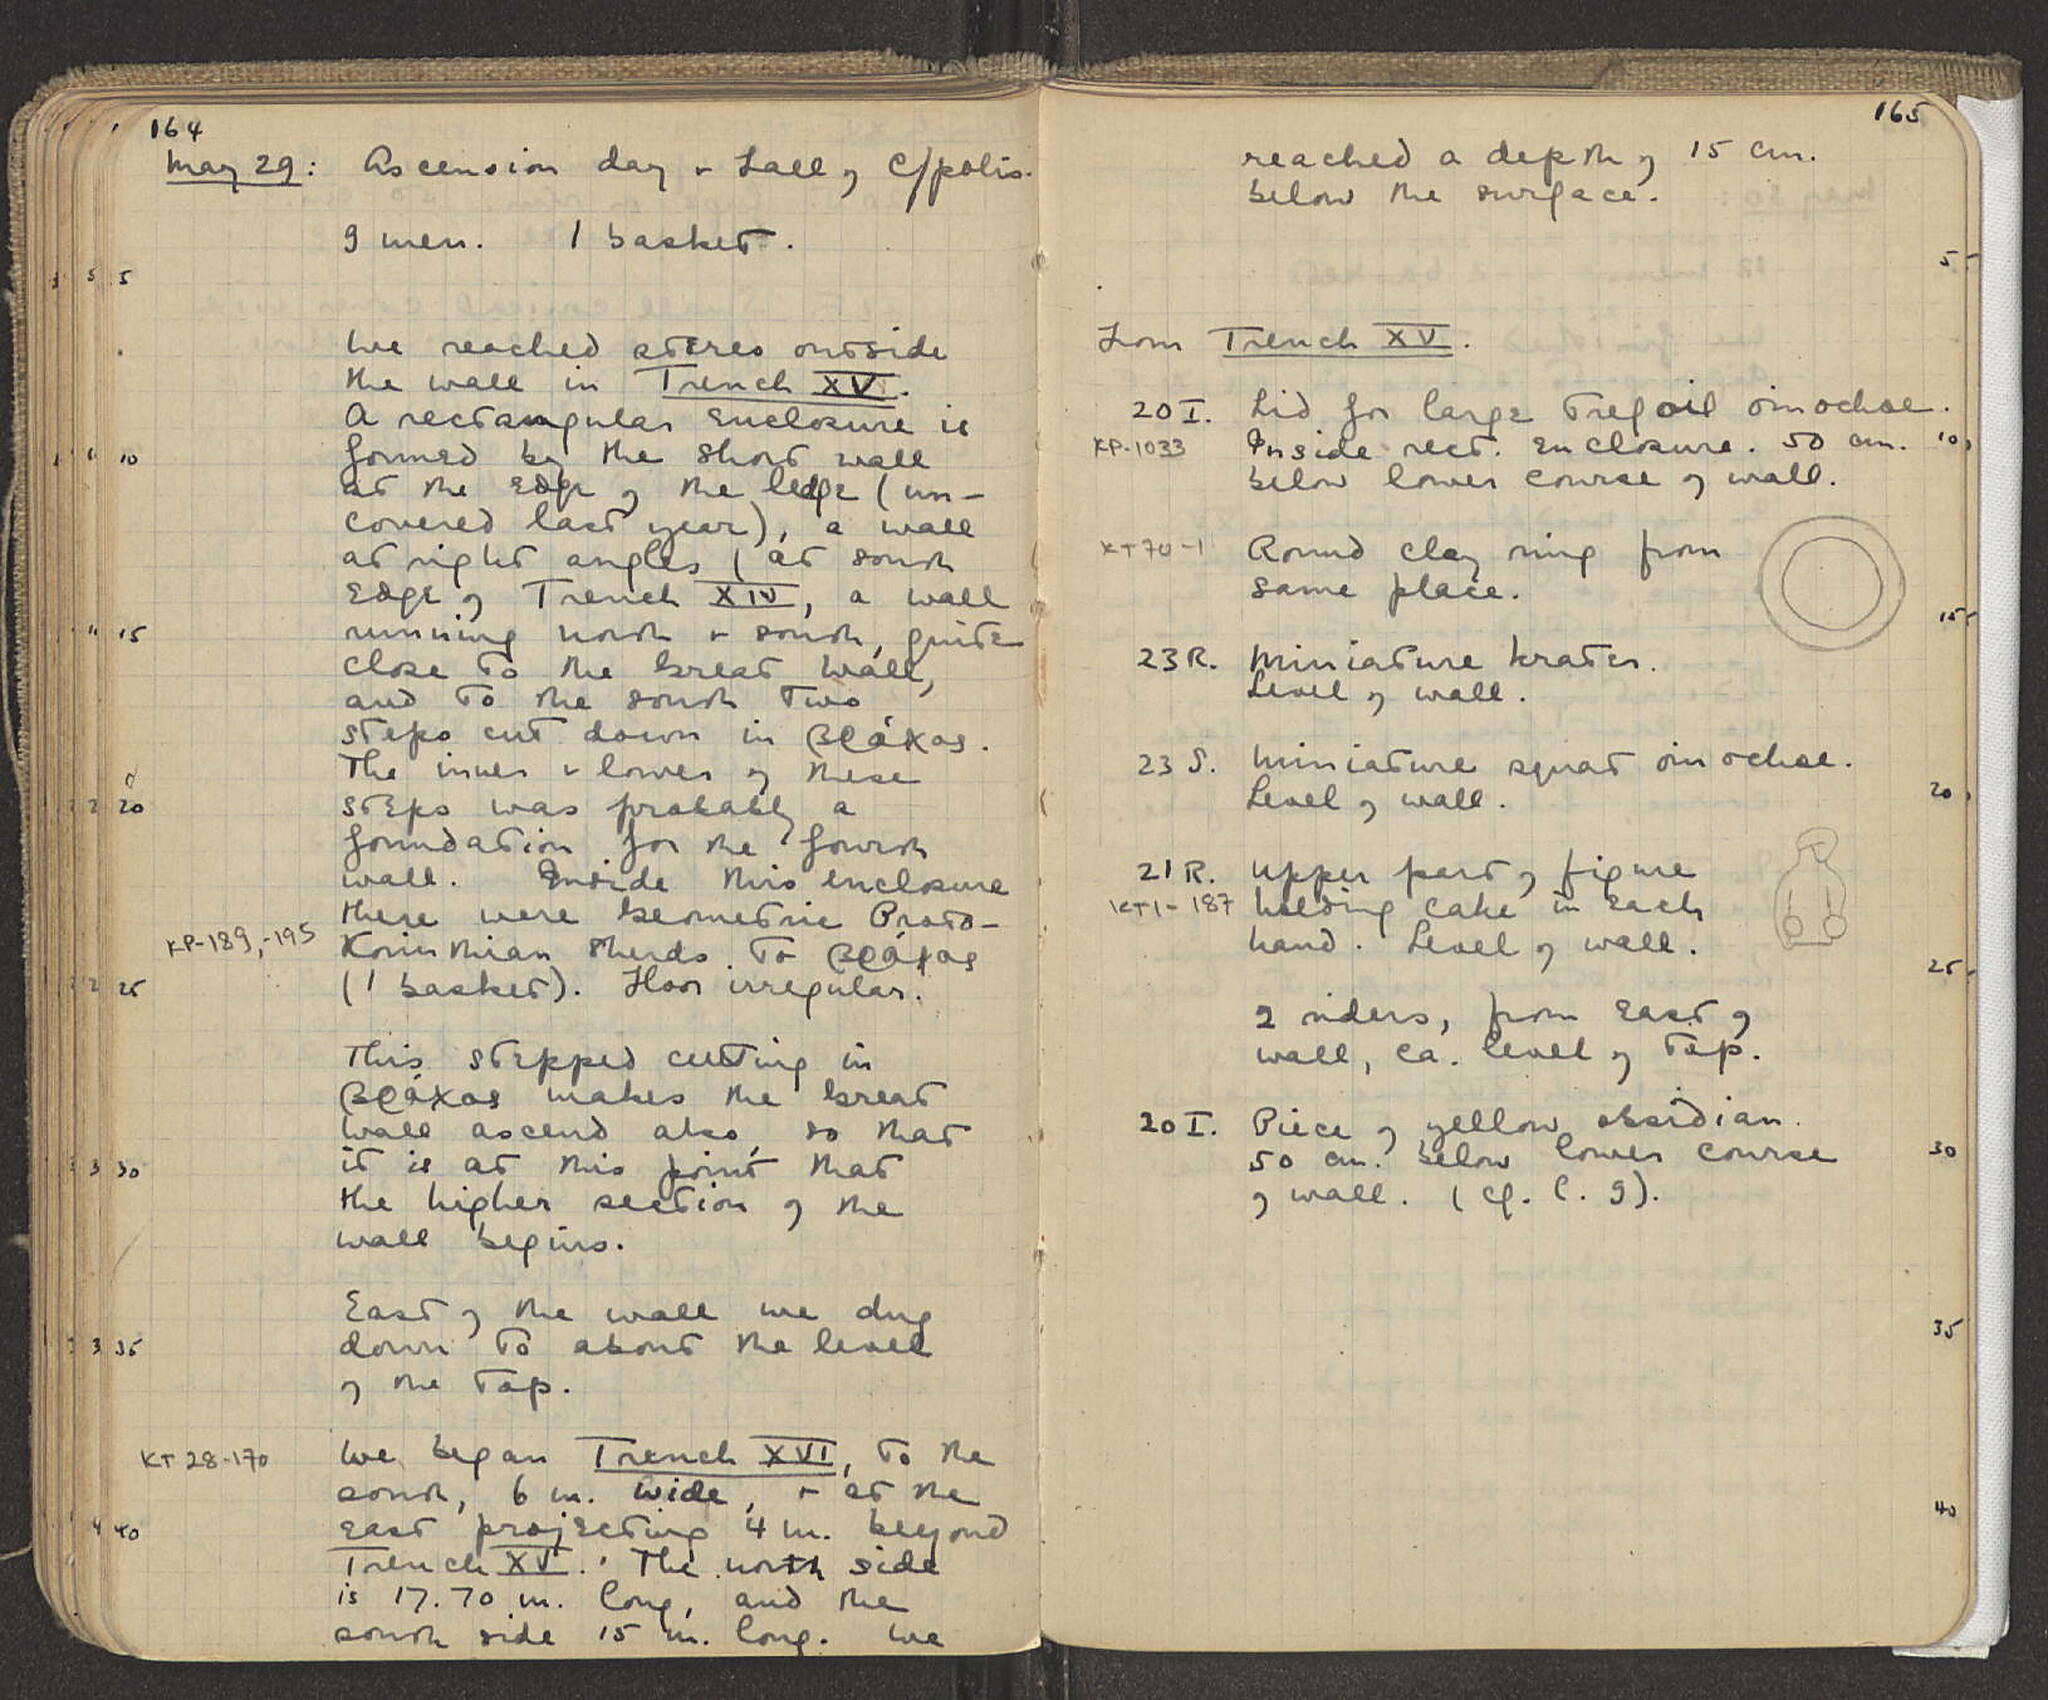 164
May 29: Ascension day + Fall of C/polis.
9 men. 1 basket.
5
We reached stereo outside
the wall in Trench XV.
A rectangular enclosure is
10
formed by the short wall
at the edge of the ledge (un-
covered last year), a wall
at right angles (at south
edge of Trench XIV, a wall
15
running north + south, quite
close to the great wall,
and to the south two
steps cut down in βράχος.
The inner + lower of these
20
steps was probably a
foundation for the fourth
wall. Inside this enclosure
there were Geometric Proto-
KP-189,-195
Korinthian sherds to βράχος
25
(1 basket). Floor irregular.
This stepped cutting in
βράχος makes the great
wall ascend also, so that
30
it is at this point that
the higher section of the
wall begins.
East of the wall we dug
35
down to about the level
of the top.
KT 28-170
We began Trench XVI, to the
south, 6 m. wide, + at the
40
east projecting 4 m. beyond
Trench XV. The north side
is 17.70 m. long, and the
south side 15 m. long. We
165
reached a depth of 15 cm.
below the surface.
5
From Trench XV.
20 I. Lid for large trefoil oinochoe.
KP-1033 Inside rect. enclosure. 50 cm.
10
below lower course of wall.
KT70-1 Round clay ring from
same place.
15
23 R. Miniature krater.
Level of wall.
23 S. Miniature squat oinochoe.
Level of wall.
20
21 R. Upper part of figure
KT1-187 holding cake in each
hand. Level of wall.
25
2 riders, from East of
wall, ca. level of top.
20 I. Piece of yellow obsidian.
50 cm. below lower course
30
of wall. (cf. l. 9).
35
40